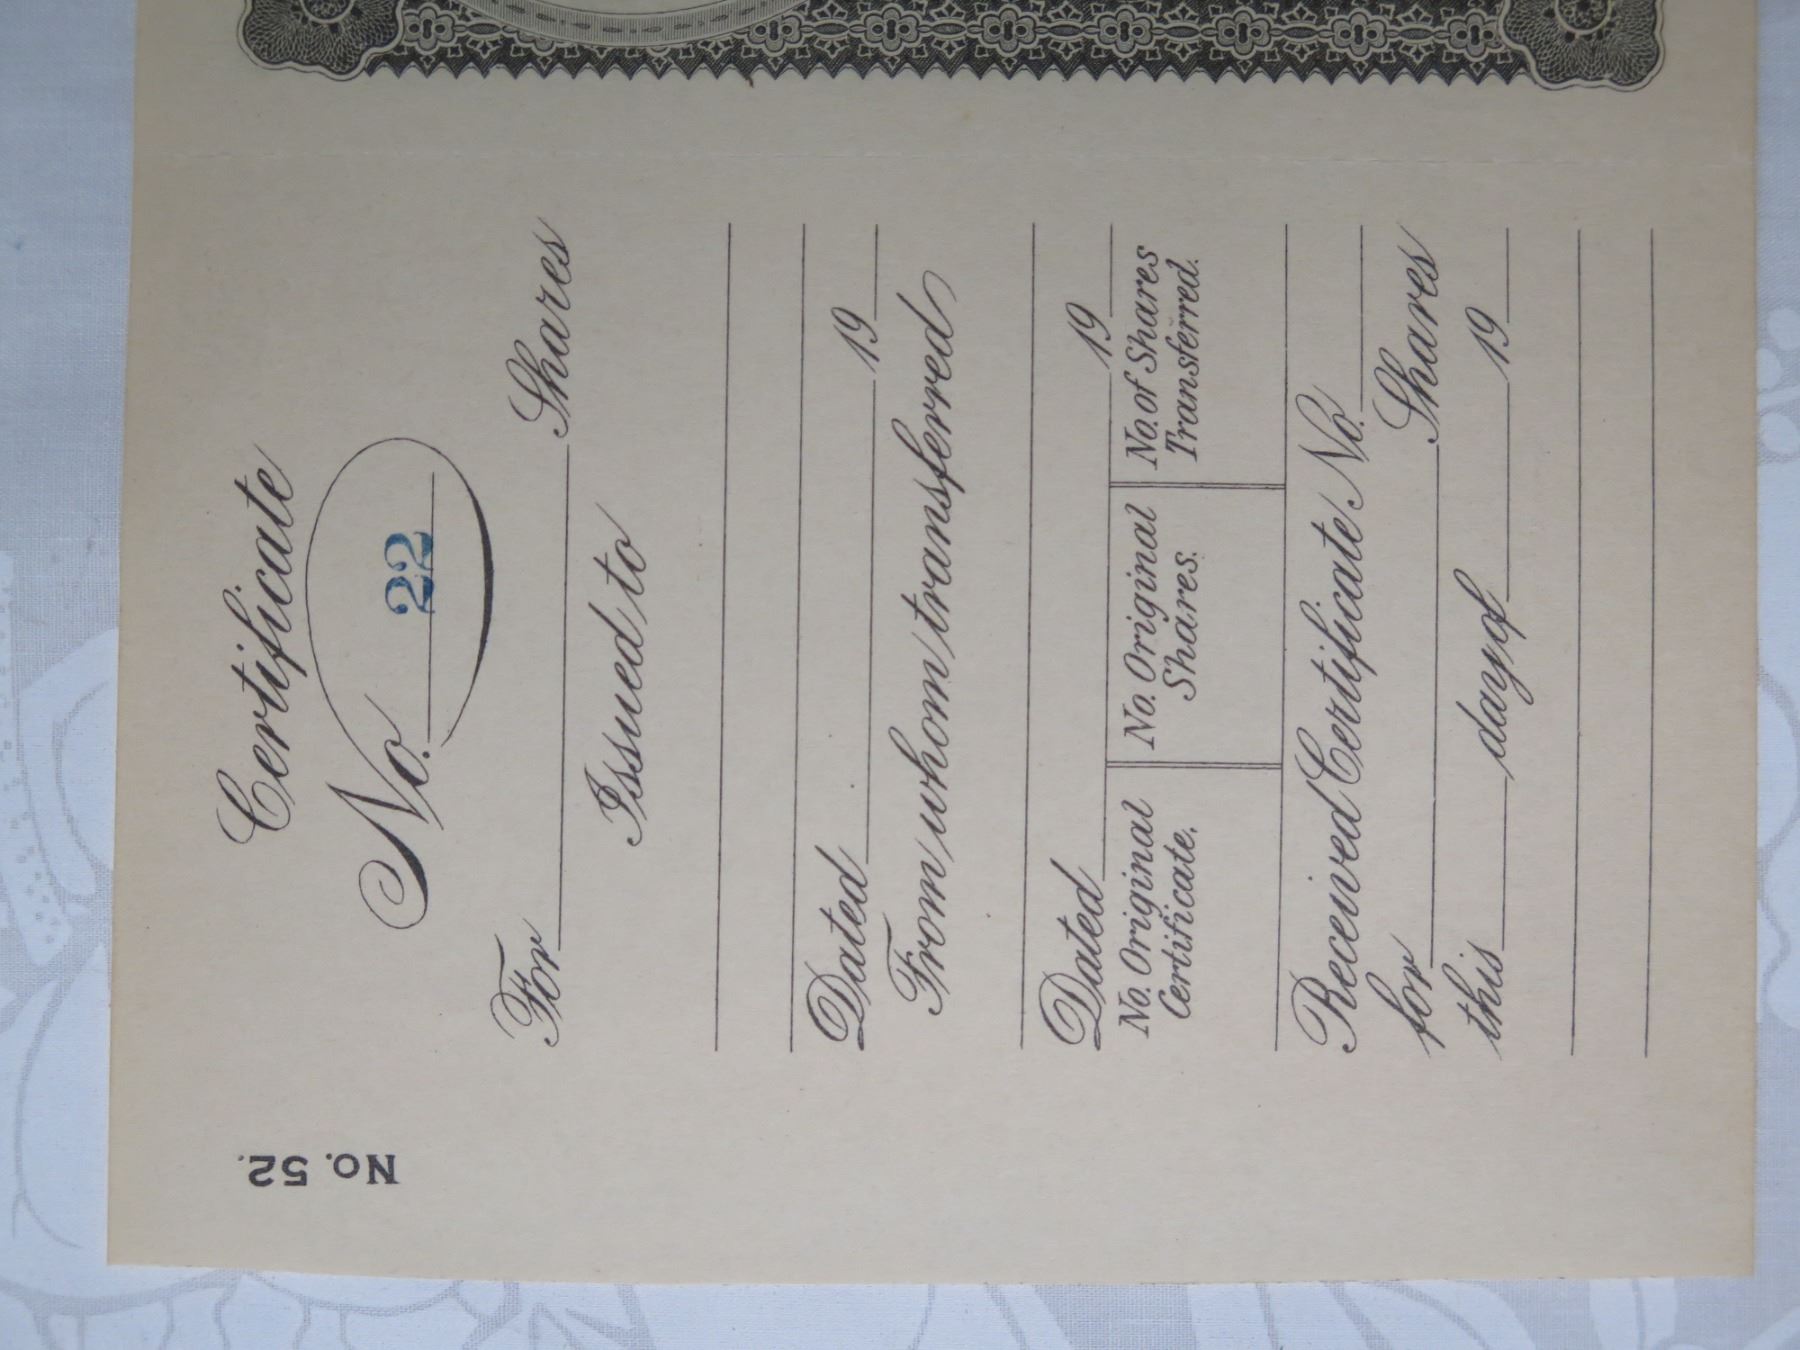 Certificate
No. 22
For Shares
Issued to
Dated 19
From whom transferred
Dated 19
No. Original Certificate.
No. Original Shares.
No. of Shares Transferred.
Received Certificate No.
for Shares
this day of 19
No. 52.